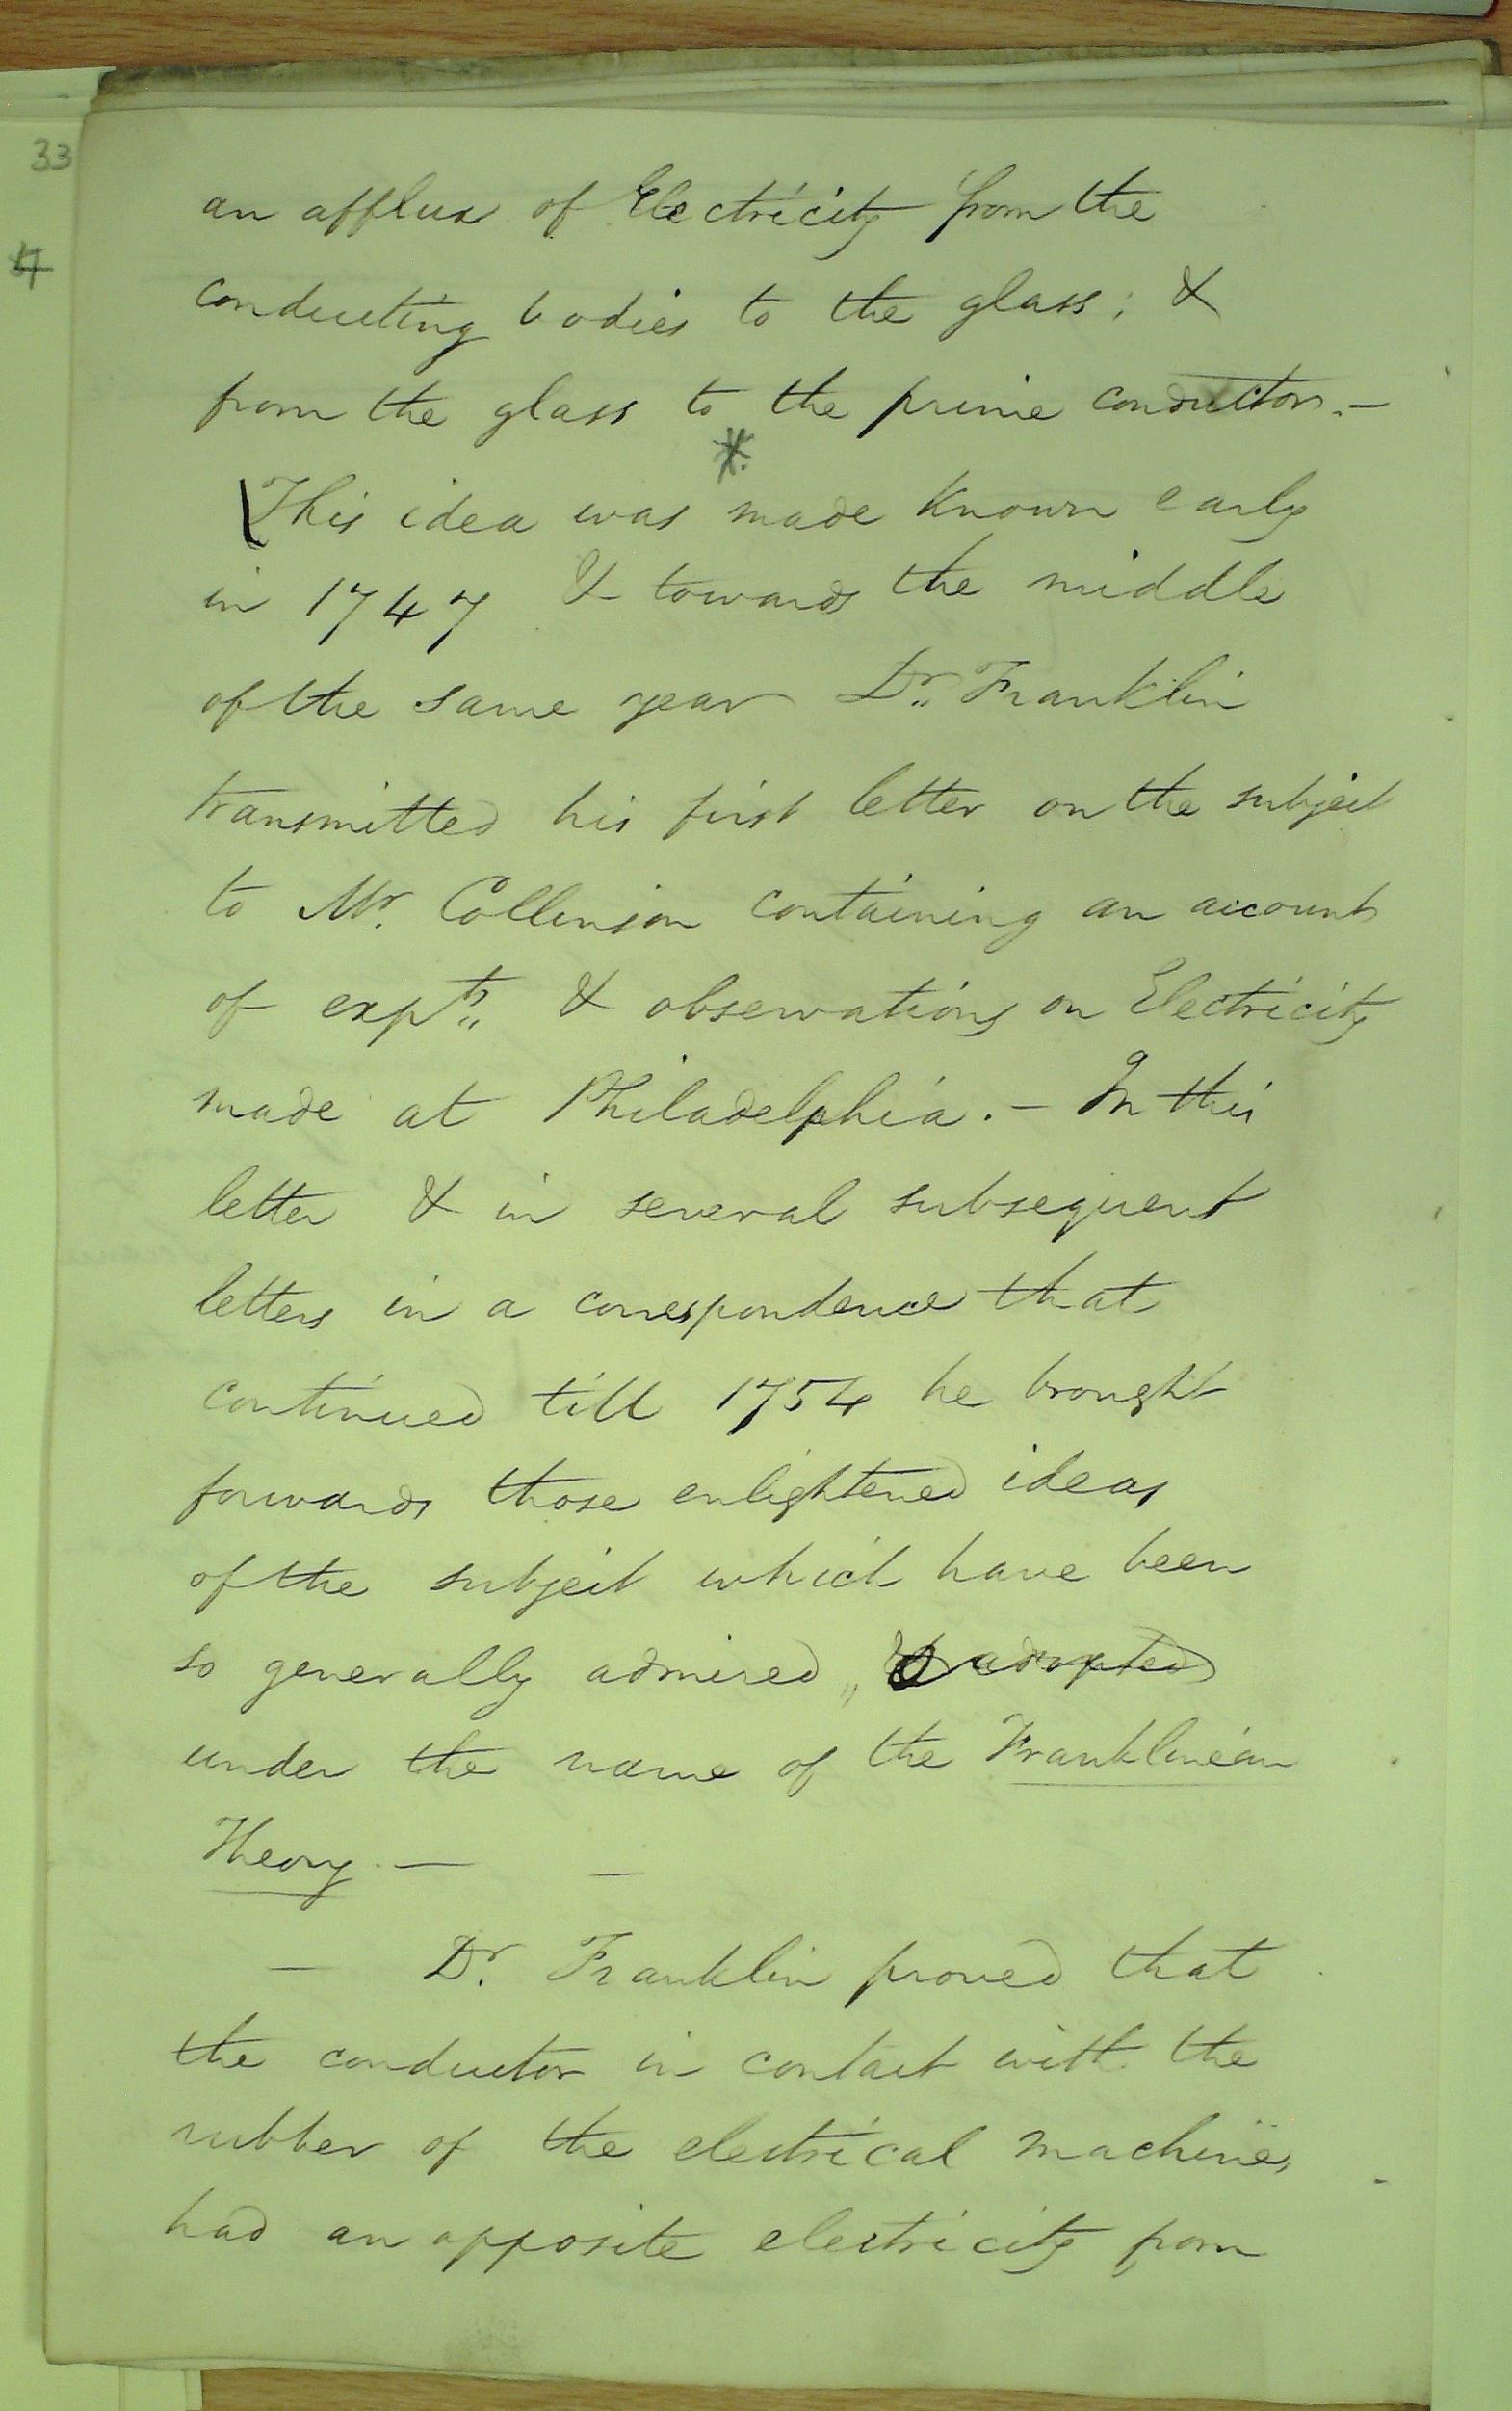 33
an afflux of Electricity from the
conducting bodies to the glass; &
from the glass to the prime conductor. -
*
This idea was made known early
in 1747 & towards the middle
of the same year Dr. Franklin
transmitted his first letter on the subject
to Mr. Collinson containing an account
of expts & observations on Electricity
made at Philadelphia. - In this
letter & in several subsequent
letters in a correspondence that
continued till 1754 he brought
forwards those enlightened ideas
of the subject which have been
so generally admired, & adopted
under the name of the Franklinean
Theory. - -
- Dr. Franklin proved that
the conductor in contact with the
rubber of the electrical machine,
had an opposite electricity from